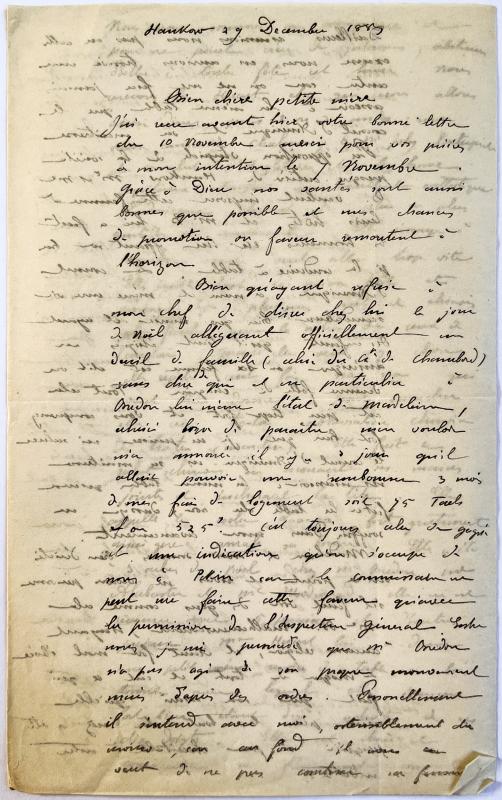 Hankow 29 Decembre 1883
Bien chère petite mère
J'ai reçu avant hier votre bonne lettre
du 10 Novembre merci pour vos prières
à mon intention le 7 Novembre.
Grâce à Dieu nos santés sont aussi
bonnes que possible et mes chances
de promotion ou faveur remontent à
l'horizon
Bien qu'ayant refusé à
mon chef de diner chez lui le jour
de Noël alléguant officiellement un
deuil de famille (celui du Cte de Chambord)
sans dire qui et en particulier à
Bredon lui même l'état de Madeleine,
celui-ci loin de paraître m'en vouloir
m'a annoncé il y a jours qu'il
allait pouvoir me rembourser 3 mois
de mes frais de logement soit 75 Taels
et 525f C'est toujours cela de gagné
et une indication qu'on s'occupe de
nous à Pékin car le commissaire ne
peut me faire cette faveur qu'avec
la permission de l'Inspecteur General
mais je suis persuadé que Mr Bredon
n'a pas agi de son propre mouvement
mais d'après des ordres. Personellement
il avec moi, ostensiblement du
moins, car au fond il
veut de ne pas